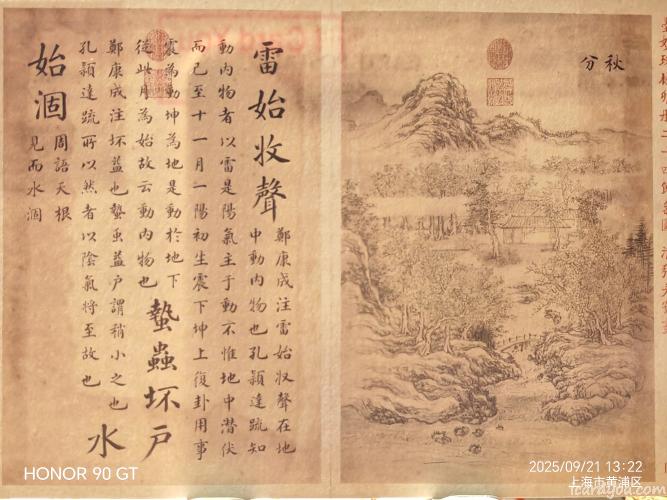 秋分
雷始收聲
鄭康成注雷始收聲在地
中動內物也孔穎達疏知
動內物者以雷是陽氣主于動不惟地中潛伏
而已至十一月一陽初生震下坤上復卦用事
震為動坤為地是動於地下
從此月為始故云動內物也
蟄蟲坏戶
鄭康成注坏益也蟄虫益戶謂稍小之也
孔穎達疏所以然者以陰氣將至故也
水
始涸
周語天根
見而水涸
HONOR 90 GT
2025/09/21 13:22
上海市黄浦区
icarayou.com